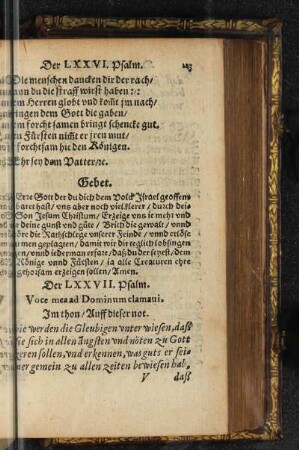 Der LXXVI. Psalm.
Die menschen dancken dir der rach/
wann du die straff wirst haben :/:
Herren globt vnd kom̃t jm nach/
bringen dem Gott die gaben/
dem forchtsamen bringt schencke gut.
Fürsten nim̃t er jren mut/
forchtsam hie den Königen.
Ehr sey dem Vatter/ꝛc.
Gebet.
Gott der du dich dem Volck Israel geoffen-
baret hast/ vns aber noch viel klerer/ durch dei-
Son Jesum Christum/ Erzeige vns ie mehr vnd
deine gunst vnd güte/ Brich die gewalt/ vnnd
die Rathschlege vnserer Feinde/ vnnd erlöse
armen geplagten/ damit wir dir teglich lobsingen
vnnd iederman erfare/ daß du der seyest/ dem
Könige vnnd Fürsten/ ja alle Creaturen ehre
gehorsam erzeigen sollen/ Amen.
Der LXXVII. Psalm.
Voce mea ad Dominum clamaui.
Im thon/ Auff dieser not.
wie werden die Gleubigen vnter wiesen, daß
sie sich in allen ängsten vnd nöten zu Gott
keren sollen, vnd erkennen, was guts er sei-
gemein zu allen zeiten bewiesen hab,
V daß